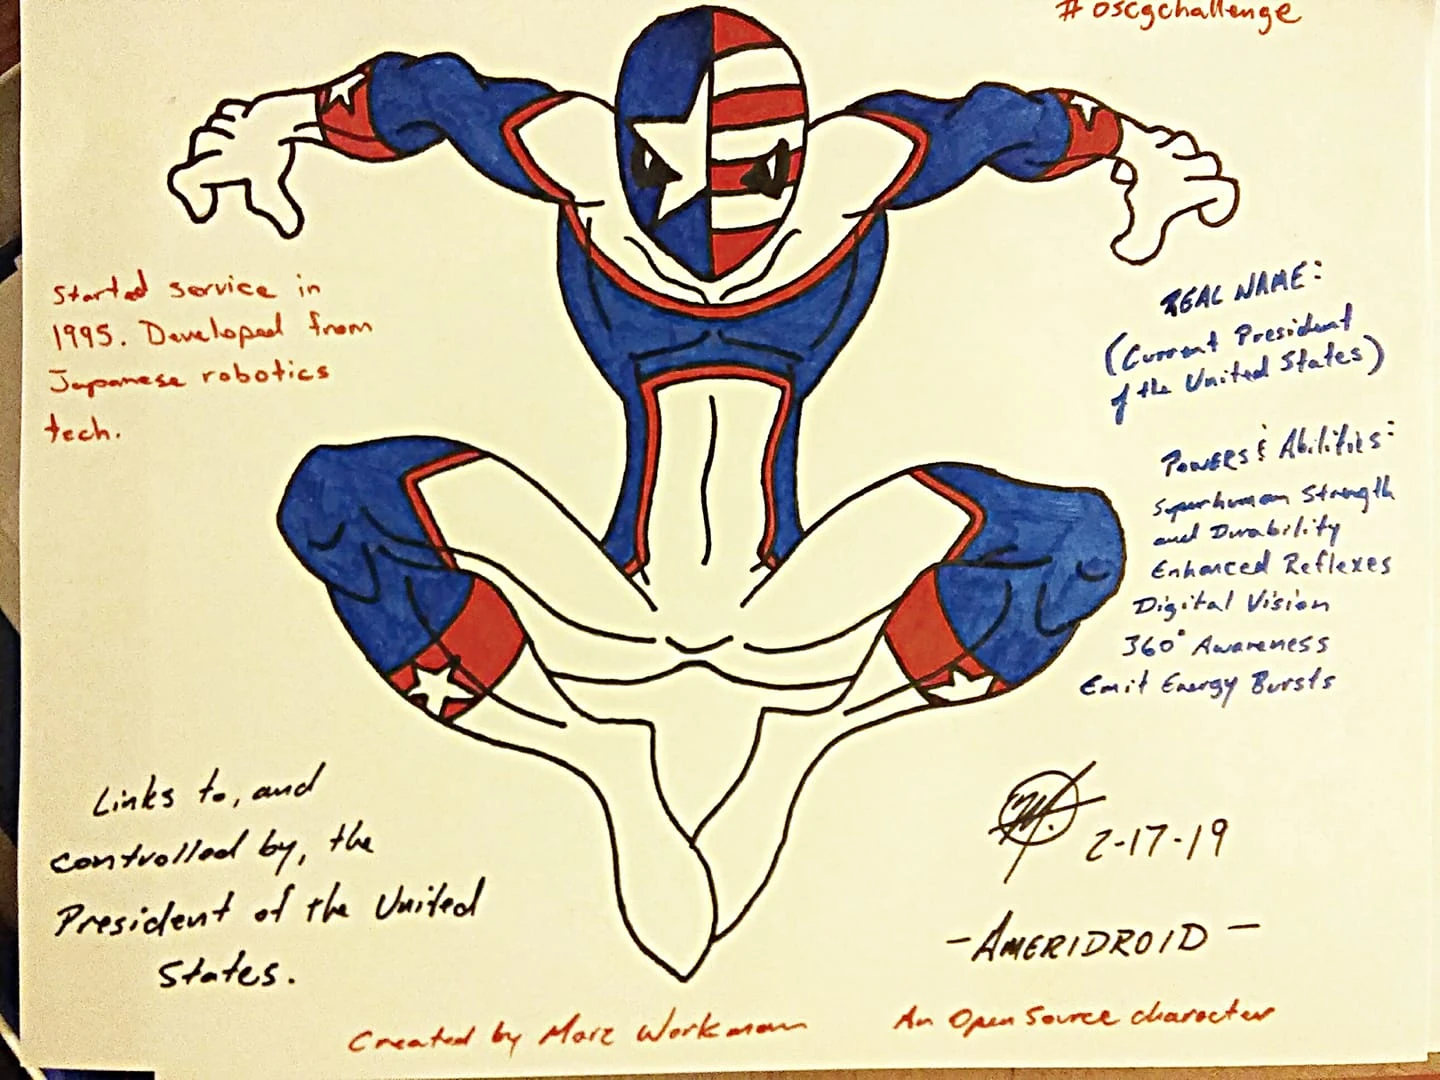 #oscgchallenge
Started service in
1995. Developed from
Japanese robotics
tech.
REAL NAME:
(Current President
of the United States)
POWERS & Abilities:
Superhuman Strength
and Durability
Enhanced Reflexes
Digital Vision
360° Awareness
Emit Energy Bursts
Links to, and
controlled by, the
President of the United
States.
2-17-19
-AMERIDROID-
Created by Marc Workman
An Open Source character